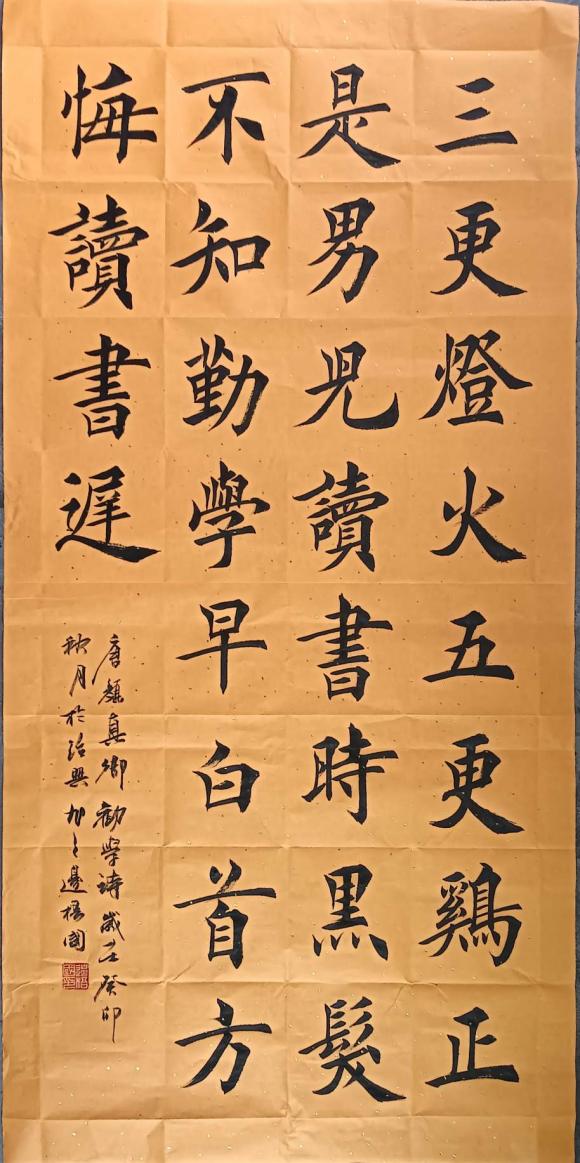 三更燈火五更鷄正
是男兒讀書時黒髮
不知勤學早白首方
悔讀書遲
唐顏真卿勸學詩歲在癸卯
秋月於治興
邊楊國